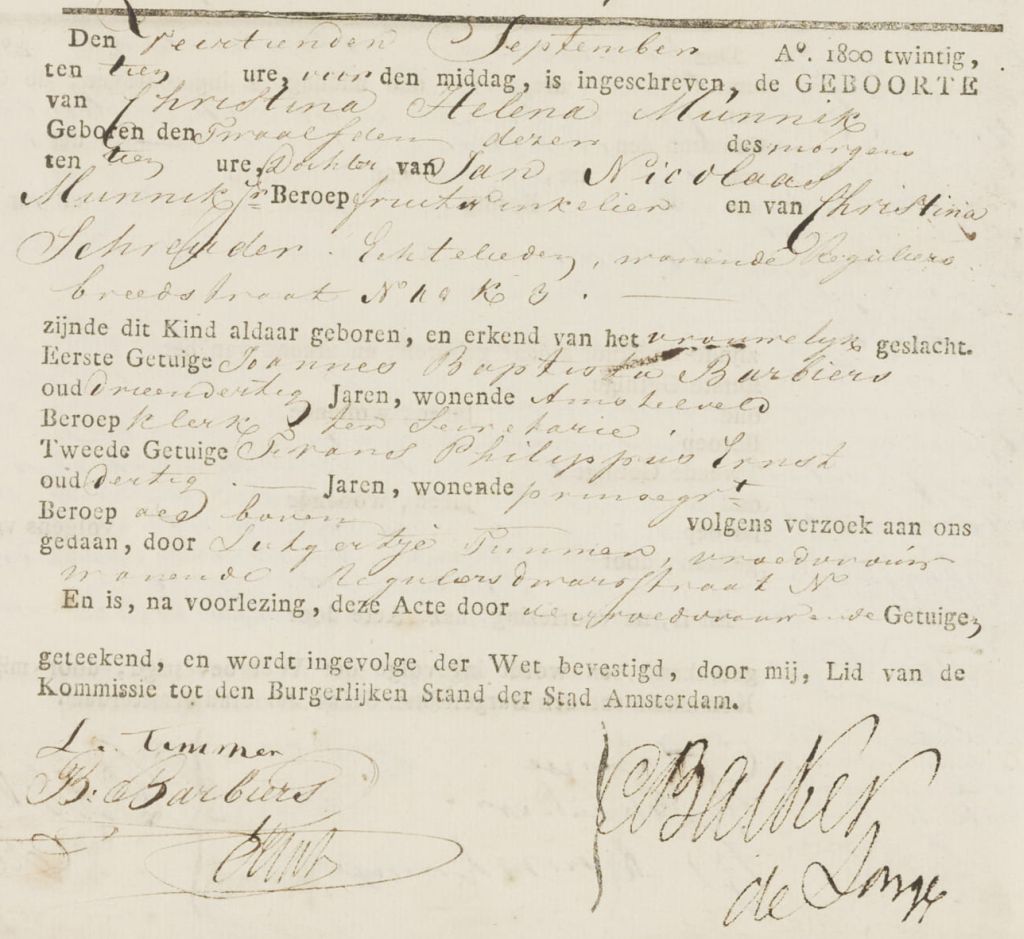 Den veertienden September Ao. 1800 twintig,
ten tien ure, voor den middag, is ingeschreven, de GEBOORTE
van Christina Helena Munnik
Geboren den Twaalfden dezer des morgens
ten tien ure, Dochter van Jan Nicolaas
Munnik Jr. Beroep fruitwinkelier en van Christina
Schreyder. Echtelieden, wonende Reguliers
breedstraat No K 3. —
zijnde dit Kind aldaar geboren, en erkend van het vrouwelyk geslacht.
Eerste Getuige Joannes Baptista Barbiers
oud drieendertig Jaren, wonende Amstelveld
Beroep klerk ter Secretarie.
Tweede Getuige Frans Philippus Ernst
oud dertig. — Jaren, wonende prinsegrt
Beroep als boven volgens verzoek aan ons
gedaan, door Lutgertje Timmer, vroedvrouw
wonende Reguliersdwarsstraat No
En is, na voorlezing, deze Acte door de vroedvrouw en de Getuigen
geteekend, en wordt ingevolge der Wet bevestigd, door mij, Lid van de
Kommissie tot den Burgerlijken Stand der Stad Amsterdam.
L. Timmer
B. Barbiers
Ernst
Backer
de Jonge